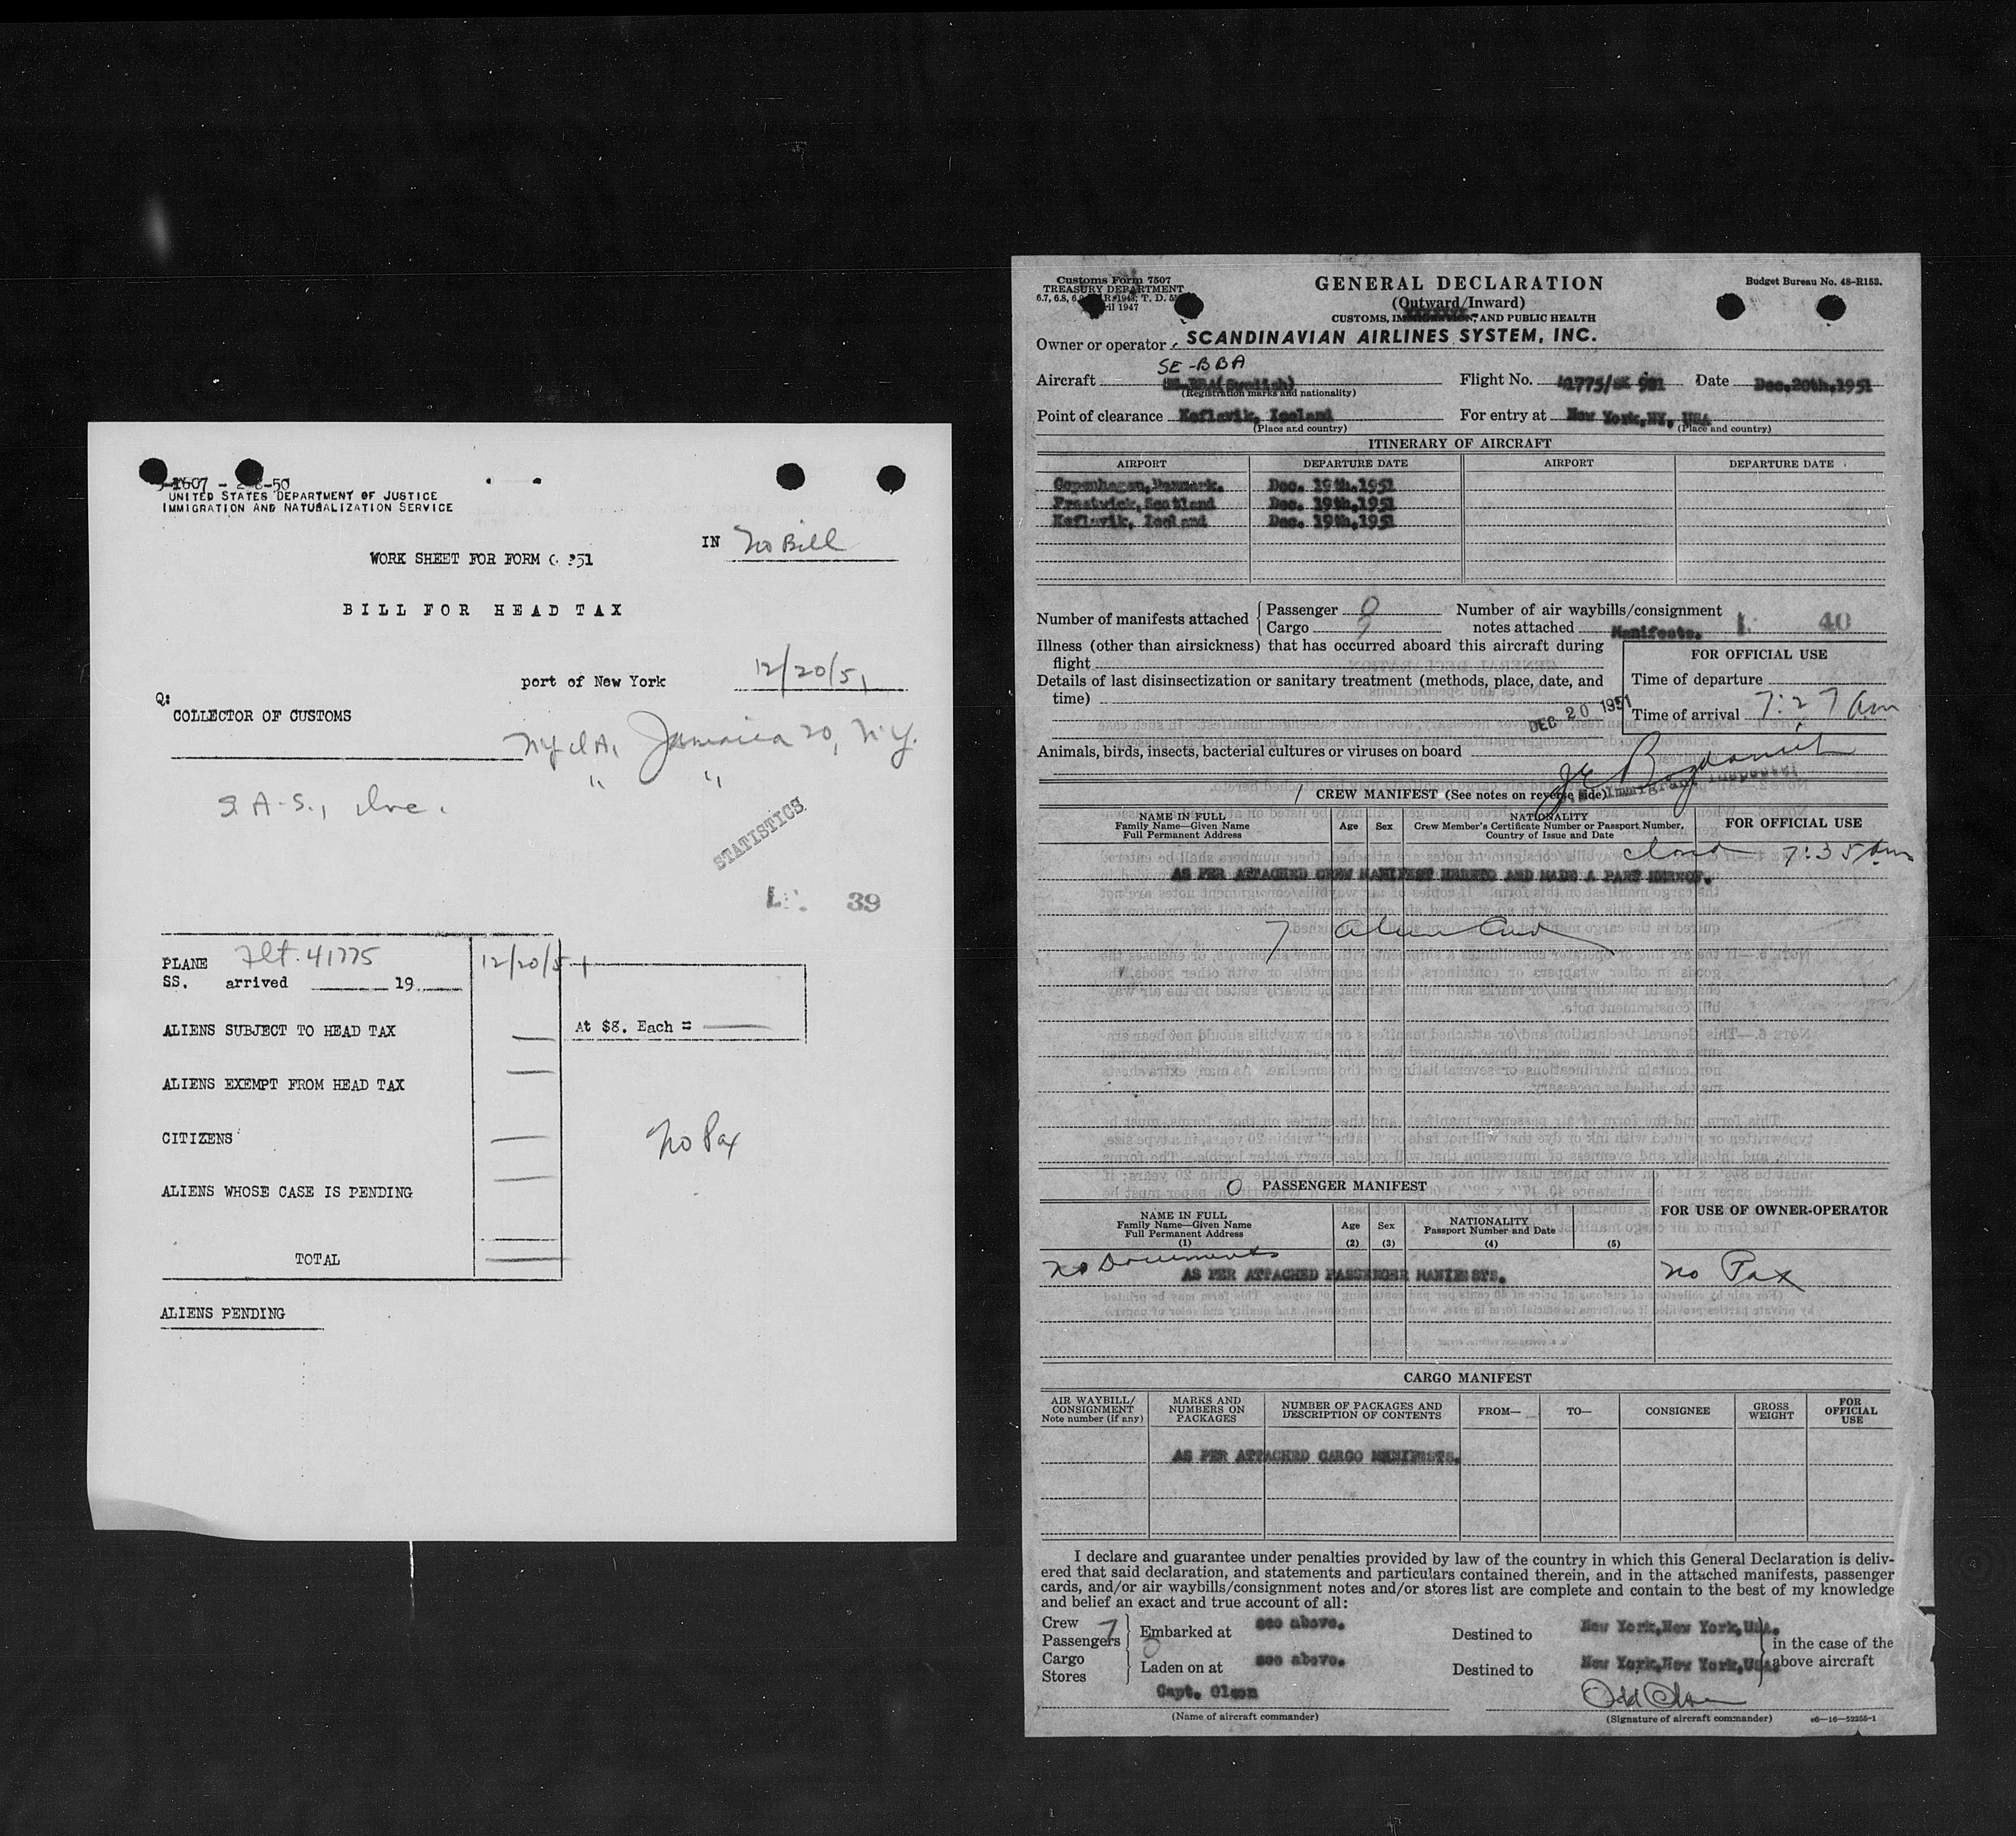 UNITED STATES DEPARTMENT OF JUSTICE
IMMIGRATION AND NATURALIZATION SERVICE
IN No Bill
WORK SHEET FOR FORM
BILL FOR HEAD TAX
port of New York 12/20/51
Q:
COLLECTOR OF CUSTOMS
Jamaica 20, N.Y.
" "
S.A.S., Inc.
STATISTICS
39
PLANE Flt. 41775 12/20/51
SS. arrived 19
ALIENS SUBJECT TO HEAD TAX — At $8. Each = —
ALIENS EXEMPT FROM HEAD TAX —
CITIZENS — No Pax
ALIENS WHOSE CASE IS PENDING —
TOTAL
ALIENS PENDING
Customs Form 7507
TREASURY DEPARTMENT
GENERAL DECLARATION
(Outward/Inward)
CUSTOMS, IMMIGRATION, AND PUBLIC HEALTH
Budget Bureau No. 48-R153.
Owner or operator SCANDINAVIAN AIRLINES SYSTEM, INC.
SE-BBA
Aircraft (Swedish) Flight No. 41775/SK 901 Date Dec.20th,1951
(Registration marks and nationality)
Point of clearance Keflavik, Iceland For entry at New York,NY, USA
(Place and country) (Place and country)
ITINERARY OF AIRCRAFT
AIRPORT DEPARTURE DATE AIRPORT DEPARTURE DATE
Copenhagen,Denmark. Dec. 19th,1951
Prestwick,Scotland Dec. 19th,1951
Keflavik, Iceland Dec. 19th,1951
Number of manifests attached Passenger 0 Number of air waybills/consignment
Cargo notes attached Manifests. 40
Illness (other than airsickness) that has occurred aboard this aircraft during
flight
FOR OFFICIAL USE
Details of last disinsectization or sanitary treatment (methods, place, date, and
time)
Time of departure
DEC 20 1951
Time of arrival 7:27 am
Animals, birds, insects, bacterial cultures or viruses on board
CREW MANIFEST (See notes on reverse side)
NAME IN FULL
Family Name—Given Name
Full Permanent Address
Age Sex
NATIONALITY
Crew Member's Certificate Number or Passport Number,
Country of Issue and Date
FOR OFFICIAL USE
7:35 am
AS PER ATTACHED CREW MANIFEST HERETO AND MADE A PART HEREOF.
7 alien Crew
0 PASSENGER MANIFEST
NAME IN FULL
Family Name—Given Name
Full Permanent Address
(1)
Age
(2)
Sex
(3)
NATIONALITY
Passport Number and Date
(4) (5)
FOR USE OF OWNER-OPERATOR
No Documents
AS PER ATTACHED PASSENGER MANIFESTS. No Pax
CARGO MANIFEST
AIR WAYBILL/
CONSIGNMENT
Note number (if any)
MARKS AND
NUMBERS ON
PACKAGES
NUMBER OF PACKAGES AND
DESCRIPTION OF CONTENTS
FROM— TO— CONSIGNEE
GROSS
WEIGHT
FOR
OFFICIAL
USE
AS PER ATTACHED CARGO MANIFESTS.
I declare and guarantee under penalties provided by law of the country in which this General Declaration is deliv-
ered that said declaration, and statements and particulars contained therein, and in the attached manifests, passenger
cards, and/or air waybills/consignment notes and/or stores list are complete and contain to the best of my knowledge
and belief an exact and true account of all:
Crew 7
Passengers 0 Embarked at see above. Destined to New York,New York,USA.
in the case of the
above aircraft
Cargo
Stores Laden on at see above. Destined to New York,New York,USA.
Capt. Olsen
(Name of aircraft commander)
Odd Olsen
(Signature of aircraft commander) c6—16—52255-1